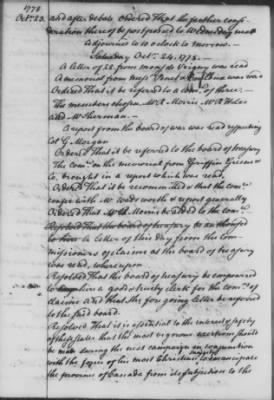 1778
Oct. 23. and after debate Ordered That the farther consi-
deration there of be postponed to Wednesday next
Adjourned to 10 o'Clock to morrow.
Saturday Oct. 24, 1778.
A letter of 22 from was read
A memorial from mess Penet & was read
Ordered That it be referred to a comee of three:
The members chosen Mr R. Morris Mr
and Mr Sherman.
A report from the board of war was read respecting
Col G Morgan
Ordered That it be referred to the board of treasury
The Comee on the memorial from Griffin Greene &
Co, brought in a report which was read,
Orderd That it be recommitted & that the comee
confer with Mr Wadsworth & report generally
Ordered That Mr Morris be added to the comee
Resolved That the board of treasury be
A letter of this day from the Com-
missioners of claims at the board of treasury
was read, whereupon
Resolved That the board of treasury be empowered
to hire a good & trusty clerk for the comrs of
claims and That the foregoing letter be referred
to the said board.
Resolved That it is essential to the interest & safety
of these states that the most vigorous exertions should
be made during the next campaign in conjunction
with the forces of his most Christian majesty to emancipate
the province of Canada from its subjection to the